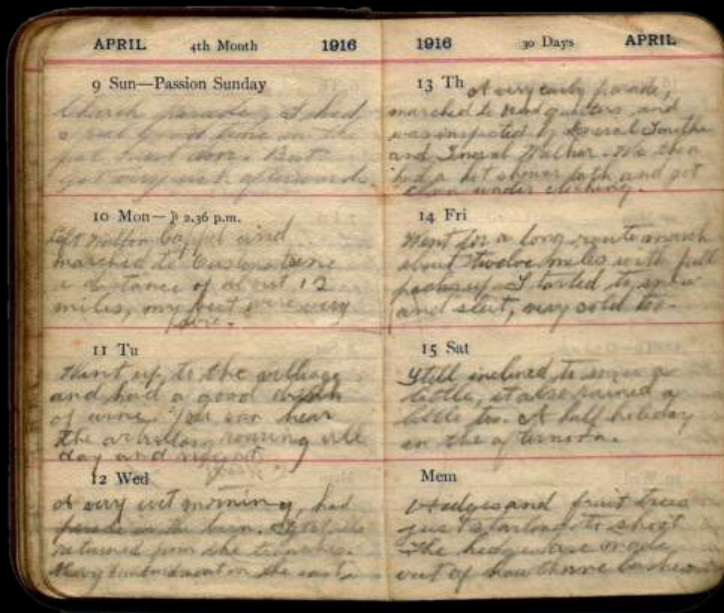 APRIL 4th Month 1916
9 Sun—Passion Sunday
Church parade, I had
a real good time on the
But
got very wet afterwards.
10 Mon— ☽ 2.36 p.m.
Left Cappel and
marched to
a distance of about 12
miles, my feet were very
sore.
11 Tu
Went up to the village
and had a good drink
of wine. You can hear
the artillary roaring all
day and night.
12 Wed
A very wet morning, had
parade in the barn.
returned from the trenches.
Heavy bombardment on the east
1916 30 Days APRIL
13 Th A very early parade,
marched to Head quarters, and
was inspected by General
and General Walker. We then
had a hot shower bath and got
clean under clothing.
14 Fri
Went for a long route march
about twelve miles with full
I started to snow
and sleet, very cold too.
15 Sat
Still inclined to snow a
little, it also rained a
little too. A half holiday
in the afternoon.
Mem
Hedges and fruit trees
just starting to shoot
The hedges are made
out of haw thorne bushes